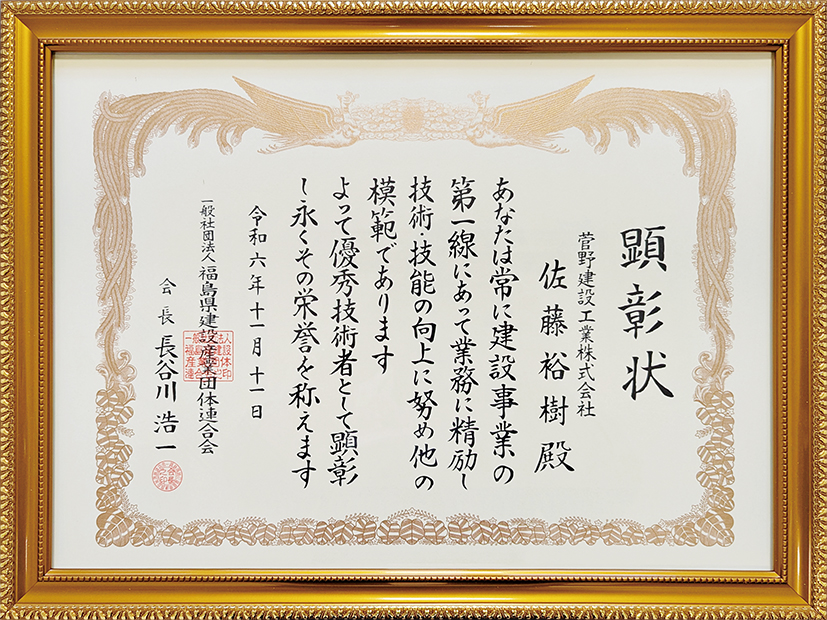 顕彰状
菅野建設工業株式会社
佐藤裕樹殿
あなたは常に建設事業の
第一線にあって業務に精励し
技術・技能の向上に努め他の
模範であります
よって優秀技術者として顕彰
し永くその栄誉を称えます
令和六年十一月十一日
一般社団法人福島県建設産業団体連合会
会長長谷川浩一